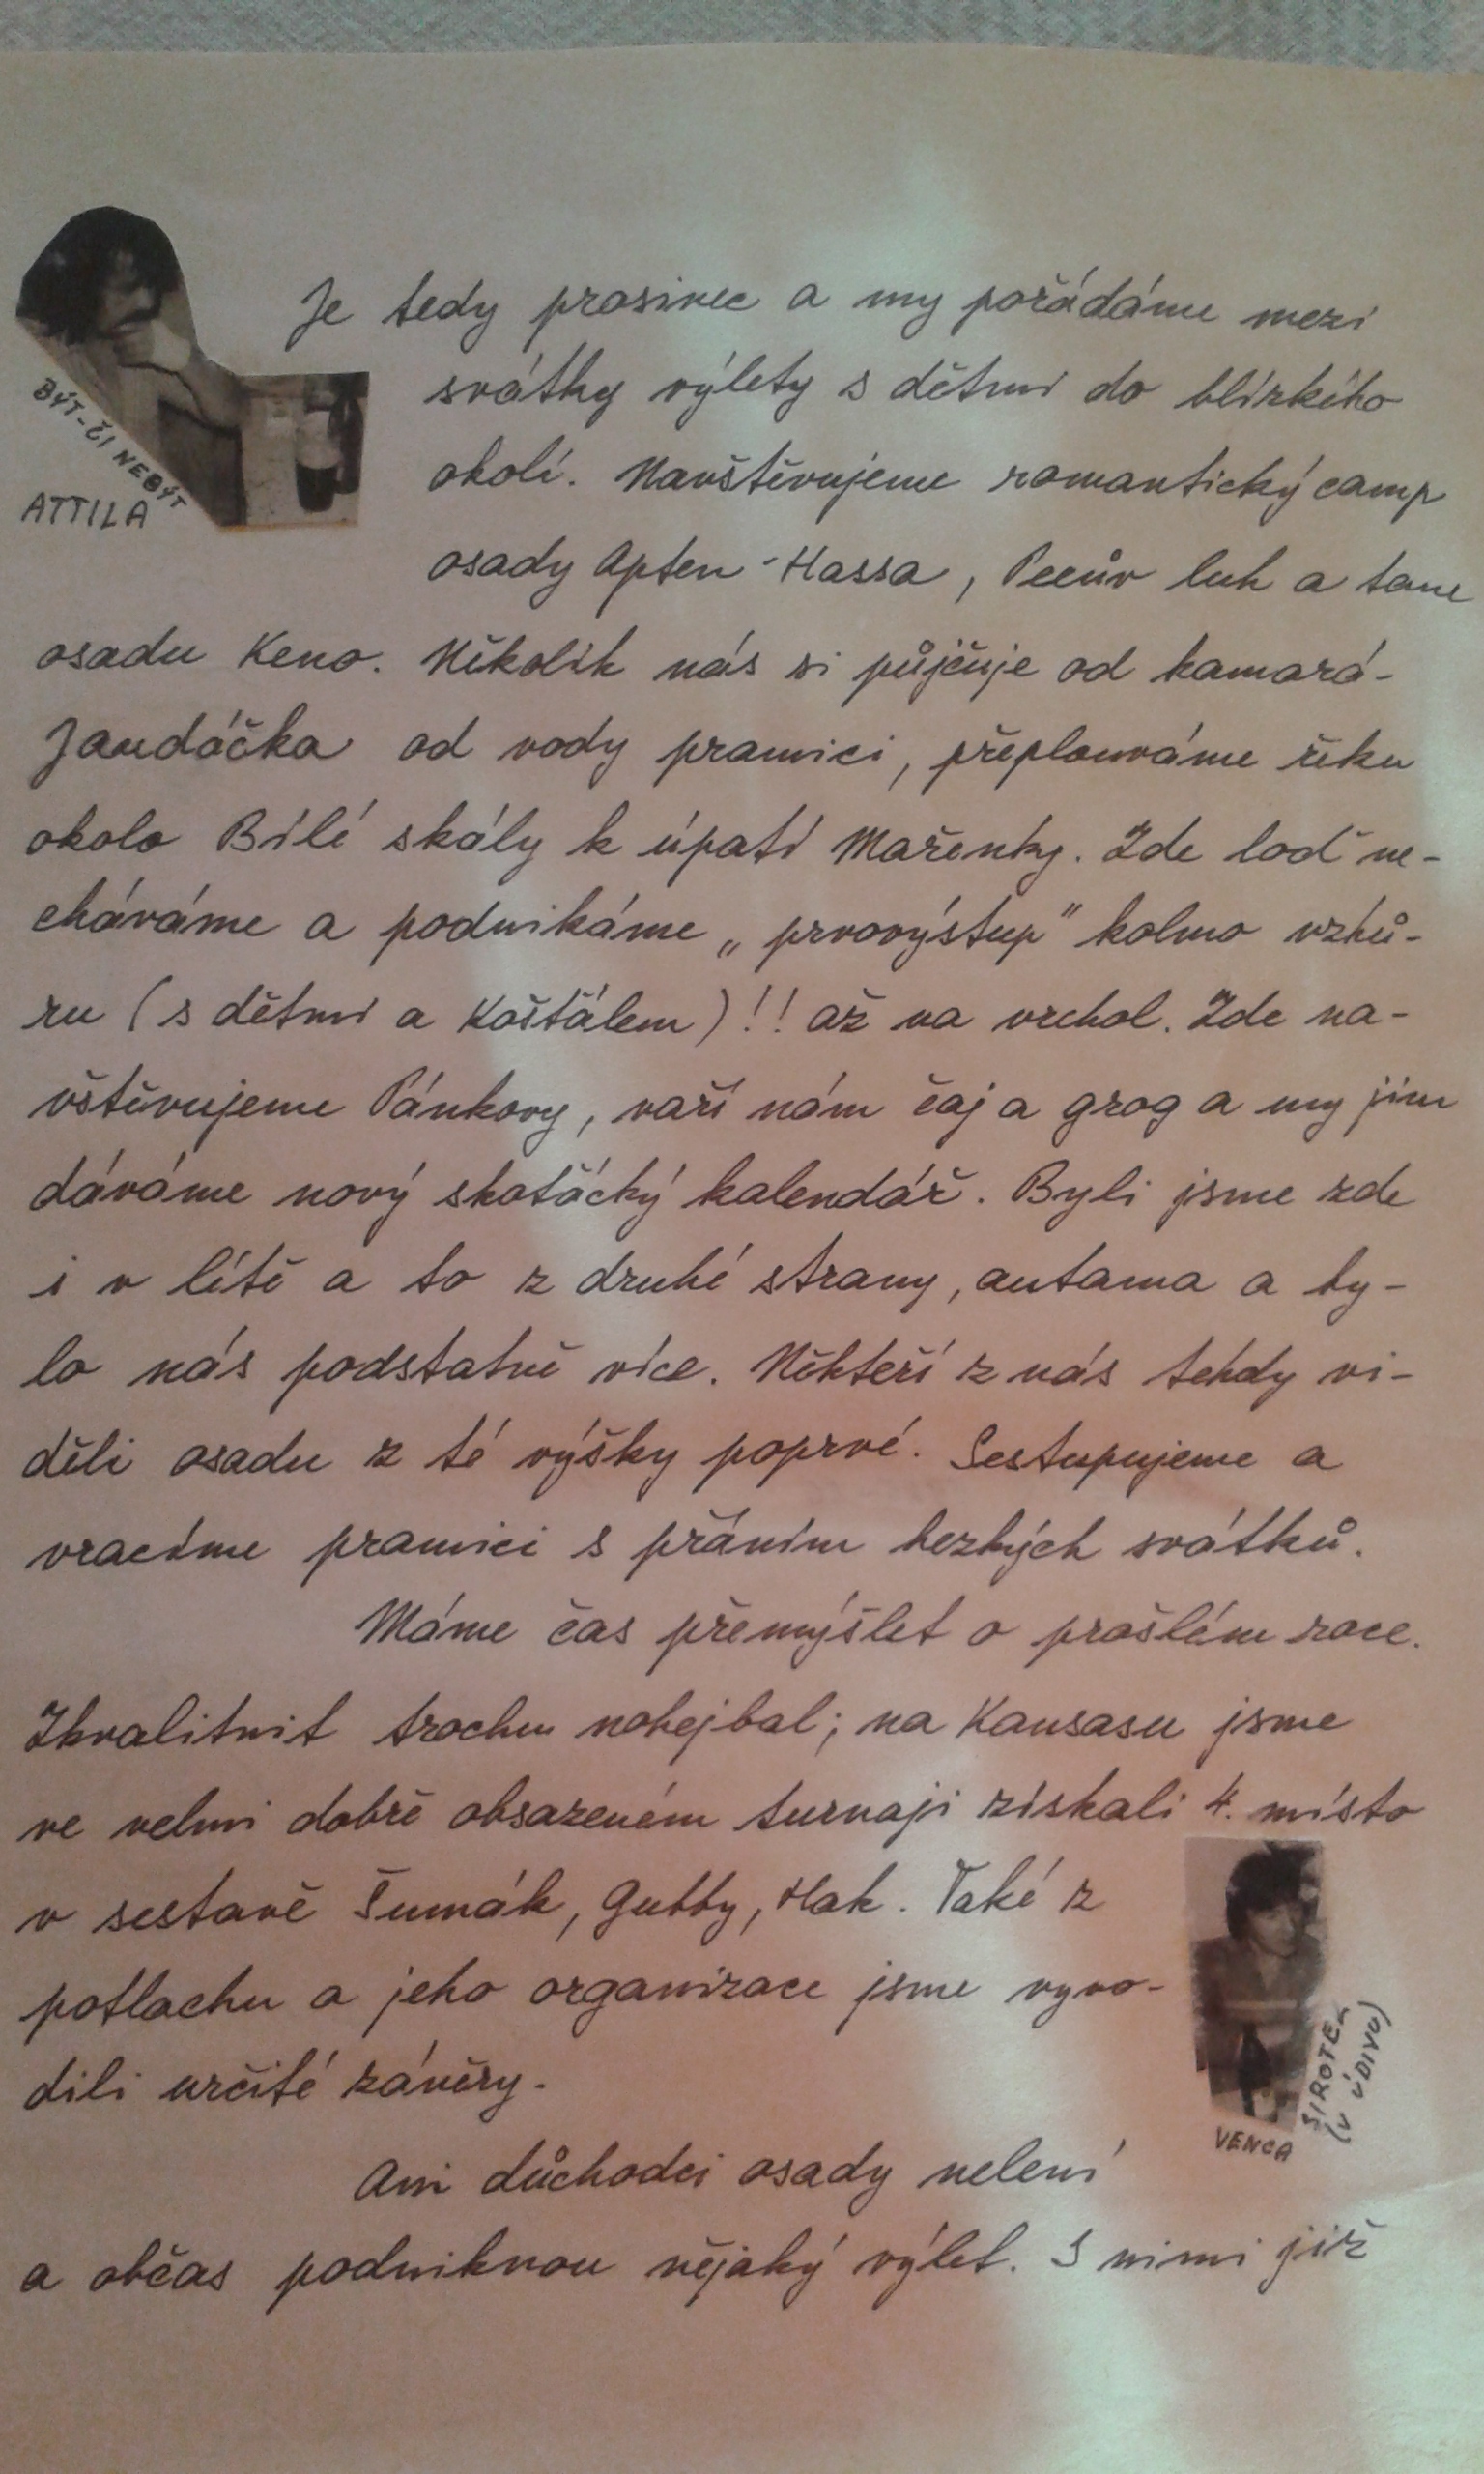 Je tedy prosinec a my pořádáme mezi
svátky výlety s dětmi do blízkého
okolí. Navštěvujeme romantický camp
osady Apten-Hassa, Pecův luh a tame
osadu Keno. Několik nás si půjčuje od kamará-
Jandáčka od vody pramici, přeplouváme řeku
okolo Bílé skály k úpatí Mařenky. Zde loď ne-
cháváme a podnikáme „prvovýstup" kolmo vzhů-
ru (s dětmi a Košťálem)!! až na vrchol. Zde na-
vštěvujeme Pánkovy, vaří nám čaj a grog a my jim
dáváme nový skoťácký kalendář. Byli jsme zde
i v létě a to z druhé strany, autama a by-
lo nás podstatně více. Někteří z nás tehdy vi-
děli osadu z té výšky poprvé. Sestupujeme a
vracíme pramici s přáním hezkých svátků.
Máme čas přemýšlet o prošlém roce.
Zkvalitnit trochu nohejbal; na Kansasu jsme
ve velmi dobře obsazeném turnaji získali 4. místo
v sestavě Šumák, Gubby, Hak. Také z
potlachu a jeho organizace jsme vyvo-
dili určité závěry.
Ani důchodci osady nelení
a občas podniknou nějaký výlet. S nimi již
BÝT-ČI NEBÝT
ATTILA
VENCA
SIROTEK
(V ÚDIVU)